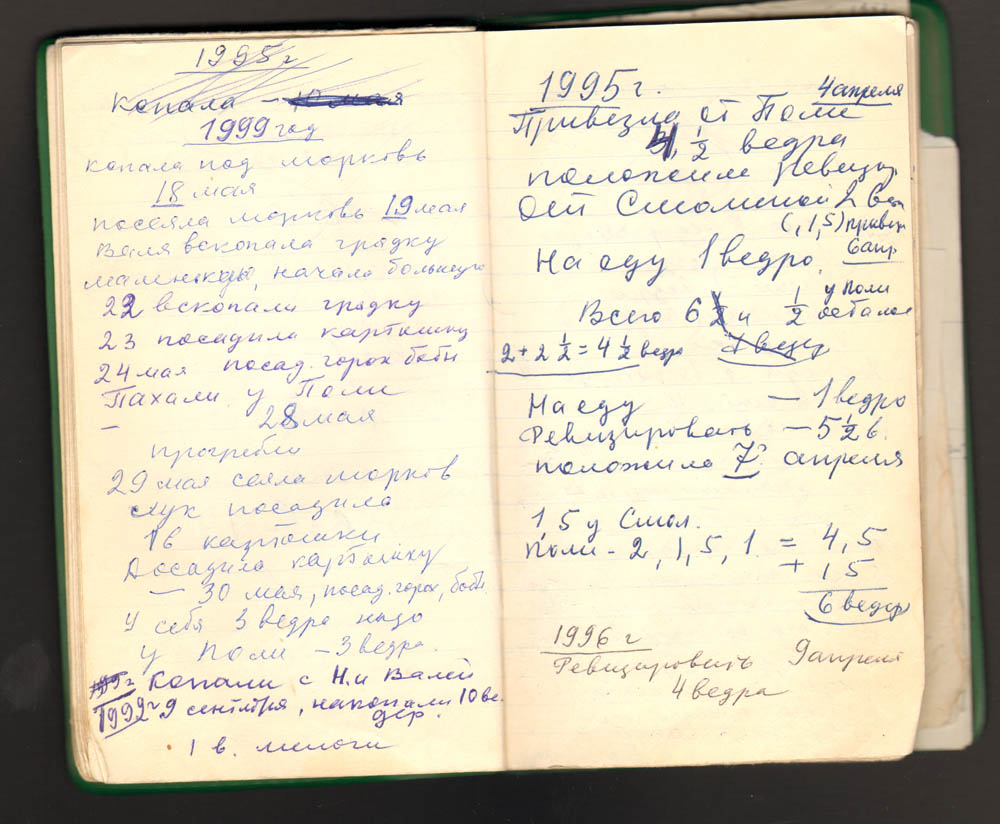 1995 г
Копала –
1999 год
копала под морковь
18 мая
посеяла морковь 19 мая
Валя вскопала грядку
маленькую, начала большую
22 вскопали грядку
23 посадила картошку
24 мая посад. горох бобы
Пахали у Поли
– 28 мая
прогребли
29 мая сеяла морков
лук посадила
1 в картошки
Досадила картошку
– 30 мая, посад. горох, боб
У себя 3 ведра надо
у Поли – 3 ведра.
Копали с Н. и Валей
1999 г 9 сентября, накопали 10 ве
дер.
1 в. мелочи
1995 г.
4 апреля
Привезла от Поли
4, 1/2 ведра
положим
От 2
(, 1, 5) привез
На еду 1 ведро. 6 апр.
Всего 6 и 1/2 у Поли
осталось
2 + 2 1/2 = 4 1/2 ведр
На еду – 1 ведро
Ревизировать – 5 1/2 в.
положила 7 апреля
1,5 у Смол.
Поли – 2, 1, 5, 1. = 4,5
+ 1 5
6 ведер
1996 г
Ревизировать 9 апреля
4 ведра